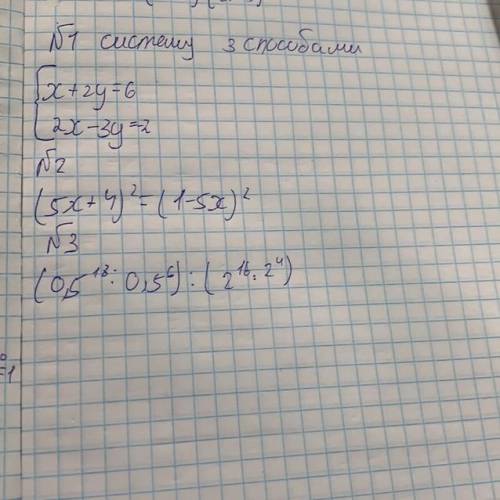 №1 систему 3 способами
x+2y=6
2x-3y=2
№2
(5x+4)²=(1-5x)²
№3
(0,5¹⁸:0,5⁶):(2¹⁶:2⁴)